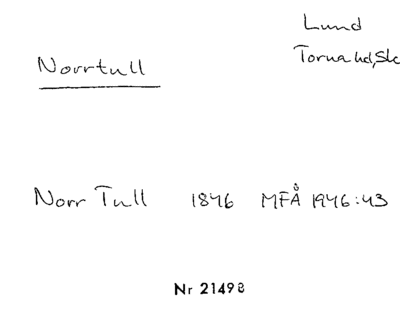 Lund
Torna hd, Sk
Norrtull
Norr Tull 1846 MFÅ 1946:43
Nr 21498